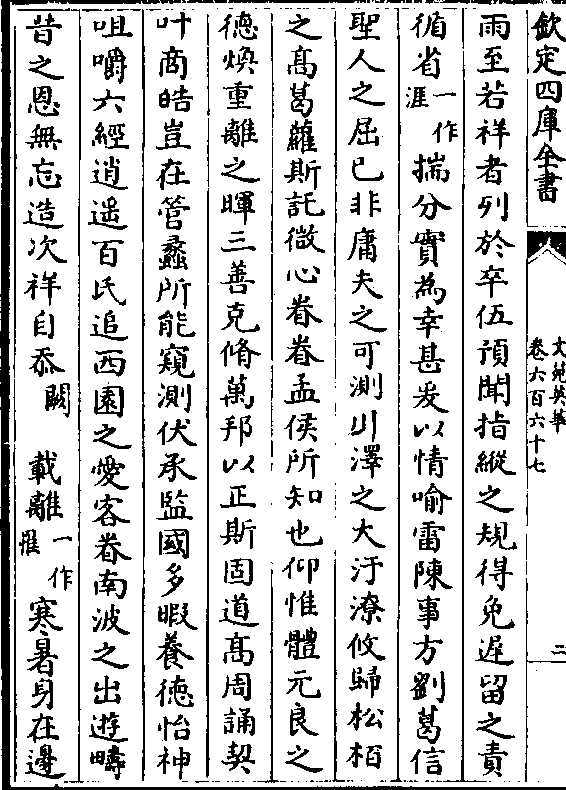 欽定四庫全書
文苑英華
卷六百六十七
二
雨至若祥者列於卒伍預聞指縱之規得免遲留之責
循省一作涯揣分實為幸甚爰以情喻雷陳事方劉葛信
聖人之屈已非庸夫之可測川澤之大汙潦攸歸松栢
之髙葛蘿斯託微心眷眷孟侯所知也仰惟體元良之
德煥重離之暉三善克脩萬邦以正斯固道髙周誦契
叶商晧豈在管蠡所能窺測伏承監國多暇養德怡神
咀嚼六經逍遥百氏追西園之愛客眷南波之出遊疇
昔之恩無忘造次祥自忝闕載離一作罹寒暑身在邊